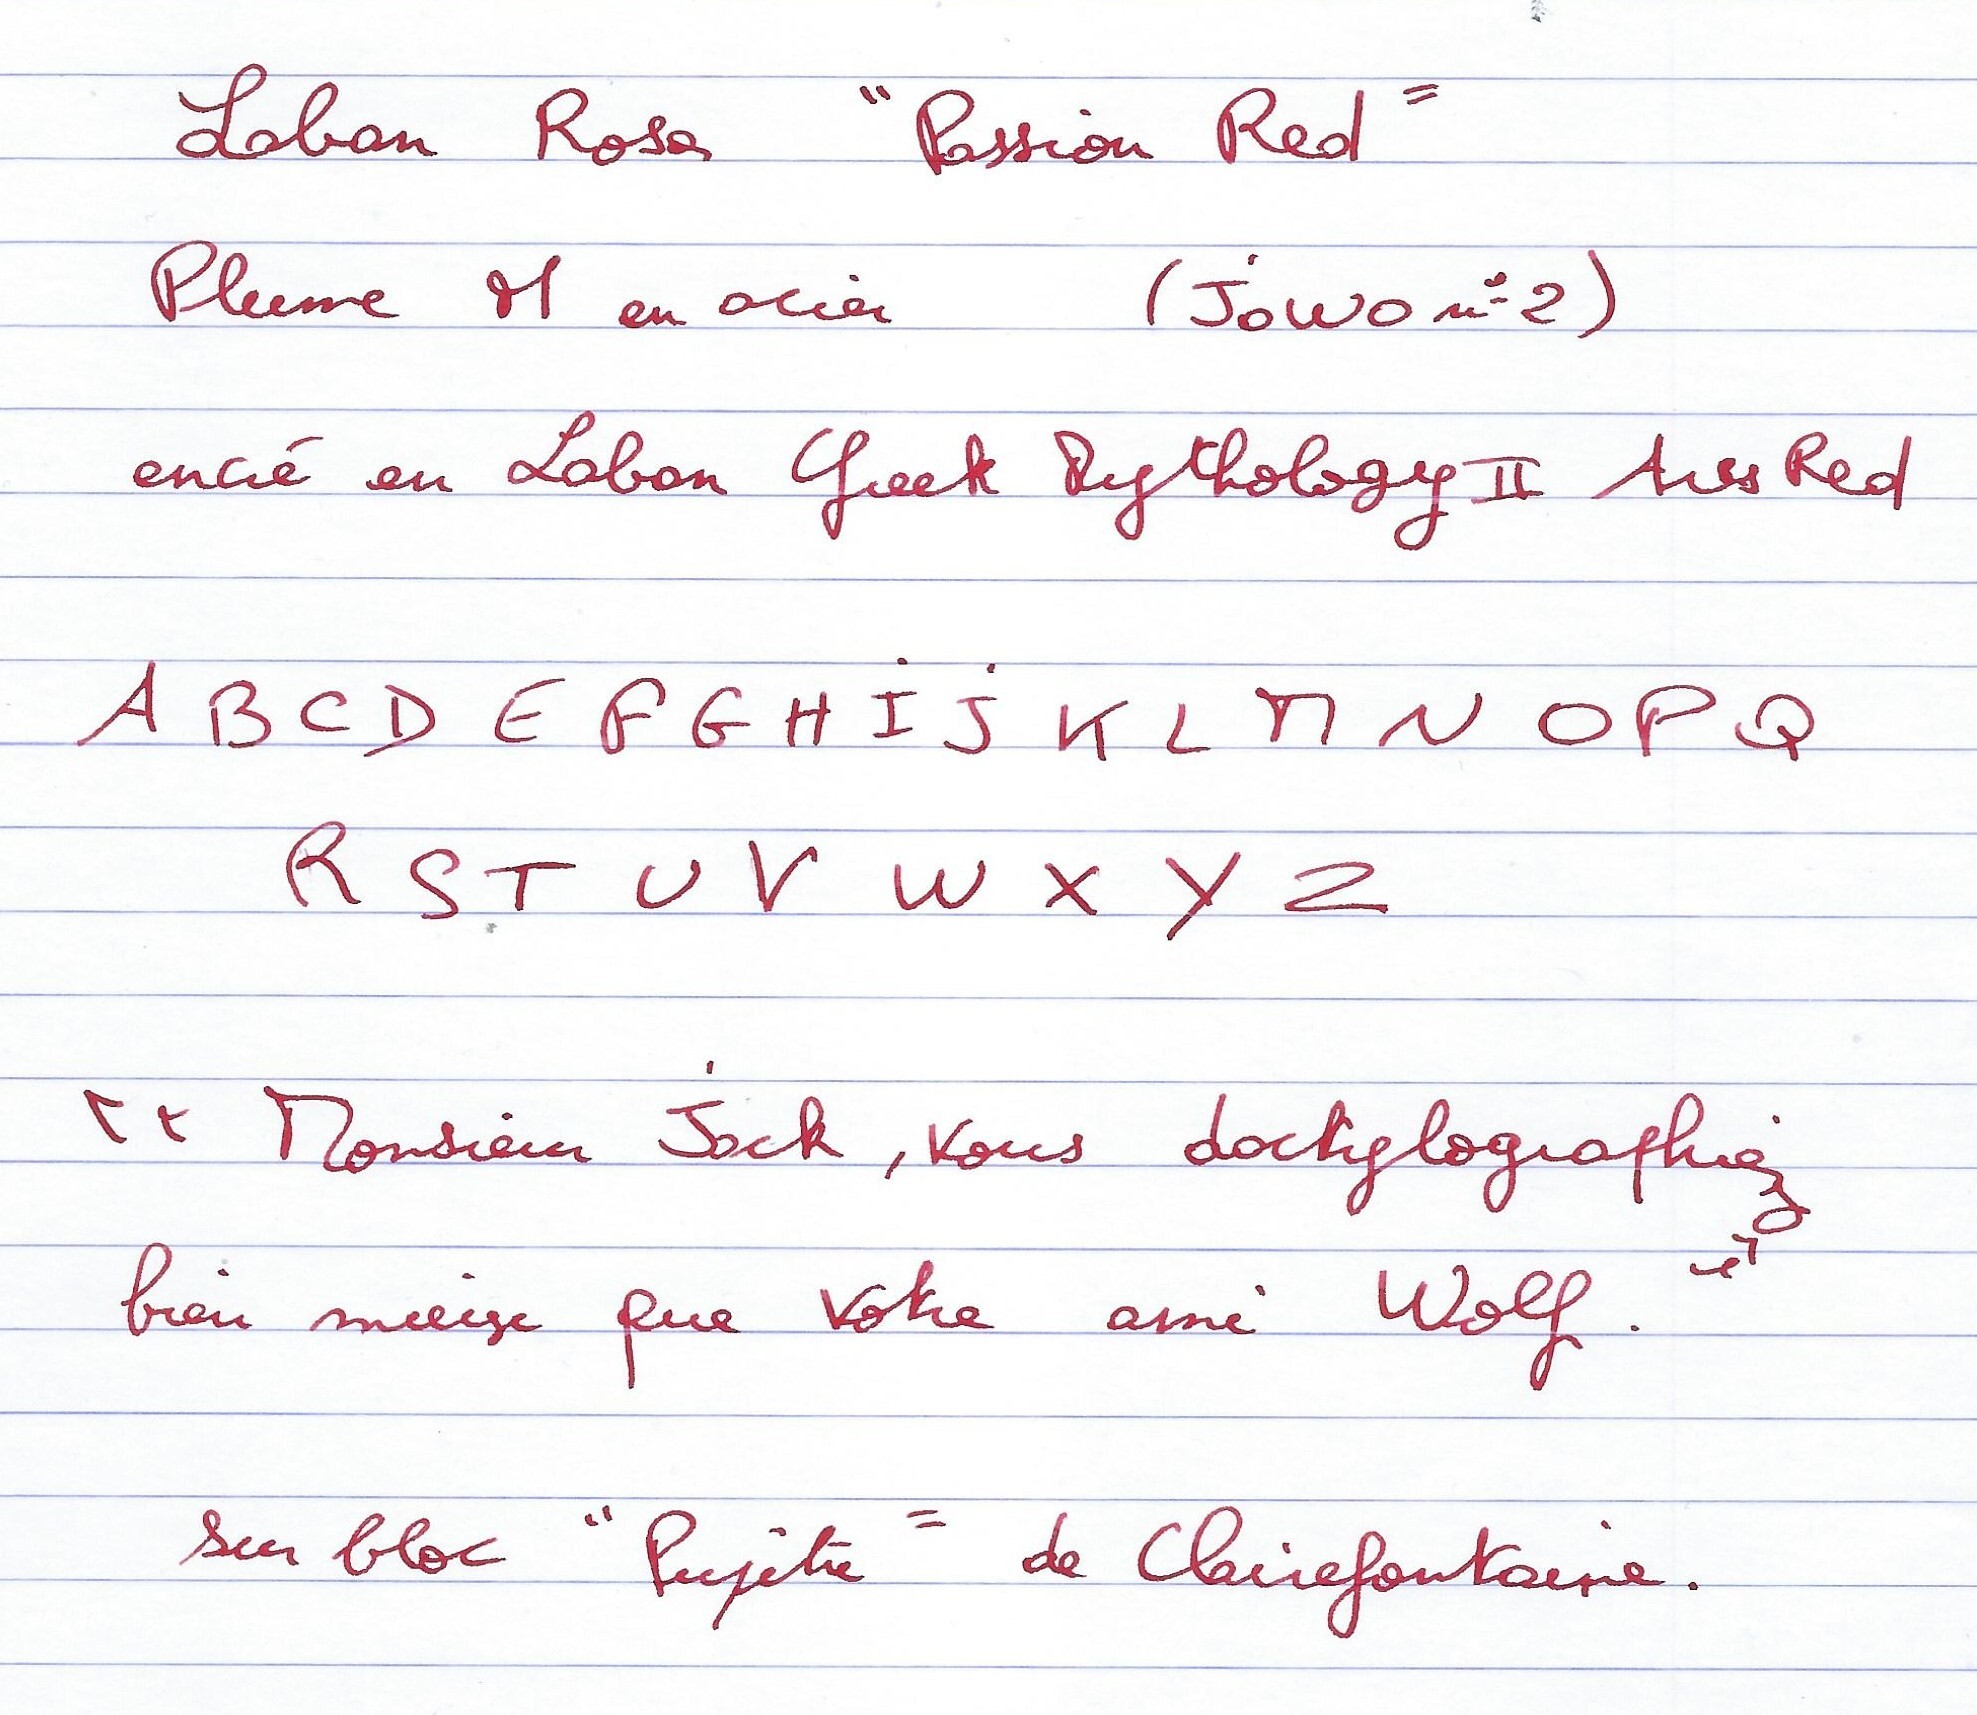 Laban Rosa "Passion Red"
Plume M en acier (JoWo n°2)
encré en Laban Greek Mythology II Ares Red
A B C D E F G H I J K L M N O P Q
R S T U V W X Y Z
"Monsieur Jack, vous dactylographiez
bien mieux que votre ami Wolf."
sur bloc "Pupitre" de Clairefontaine.